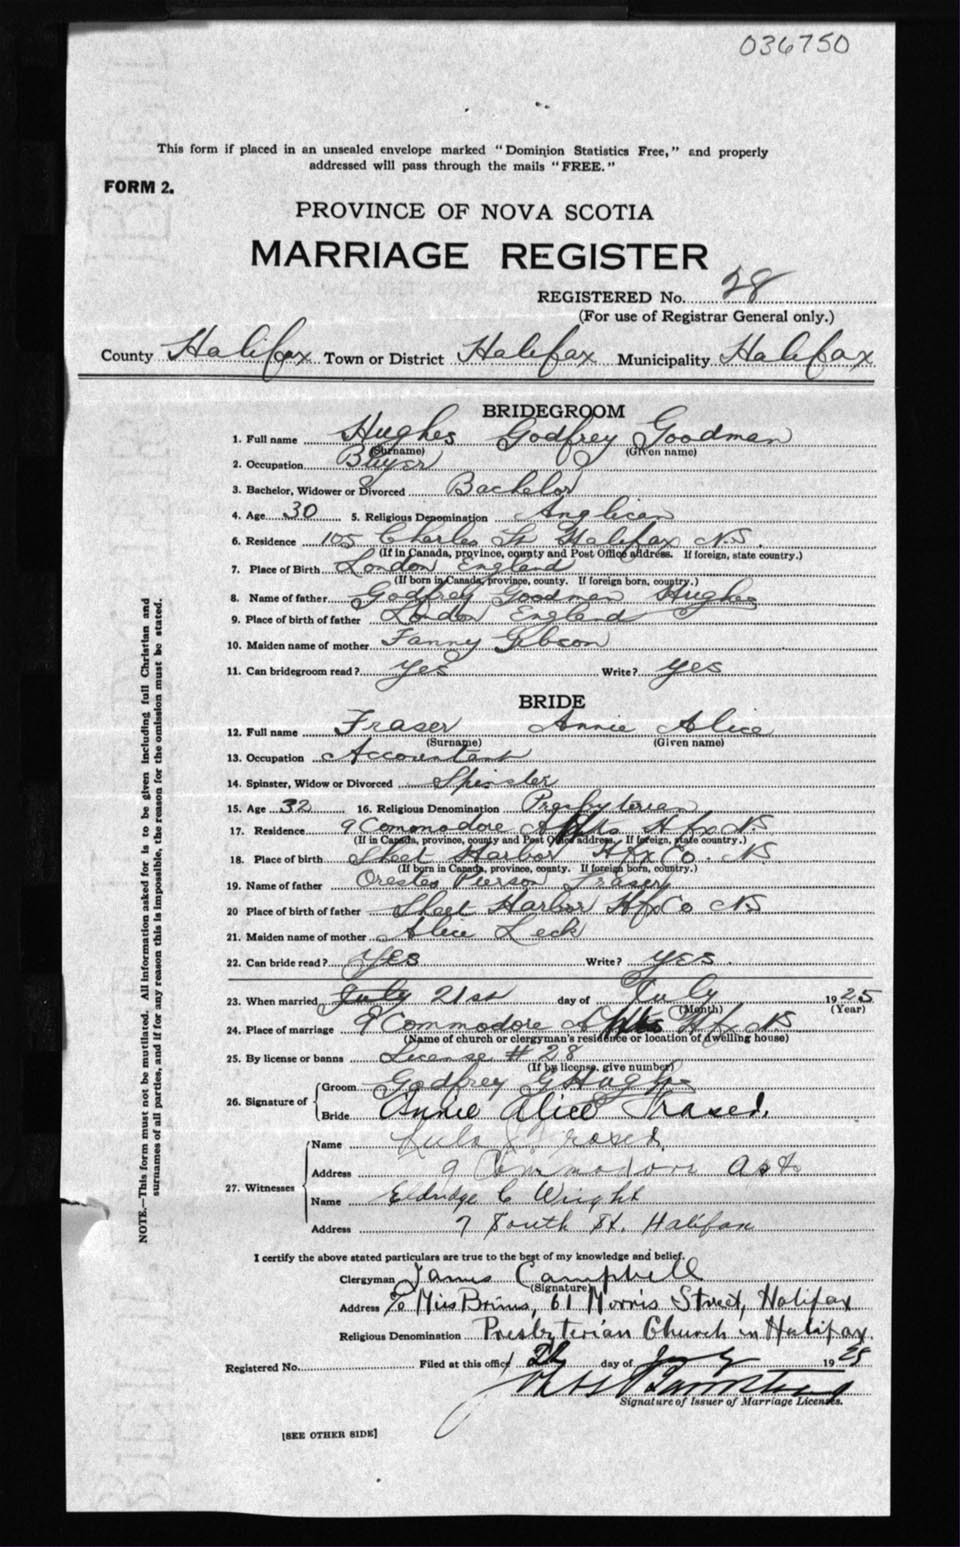 036750
This form if placed in an unsealed envelope marked "Dominion Statistics Free," and properly
addressed will pass through the mails "FREE."
FORM 2.
PROVINCE OF NOVA SCOTIA
MARRIAGE REGISTER
REGISTERED No. 28
(For use of Registrar General only.)
County Halifax Town or District Halifax Municipality Halifax
BRIDEGROOM
1. Full name Hughes Godfrey Goodman
(Surname) (Given name)
2. Occupation Buyer
3. Bachelor, Widower or Divorced Bachelor
4. Age 30 5. Religious Denomination Anglican
6. Residence 105 Charles St Halifax N.S.
(If in Canada, province, county and Post Office address. If foreign, state country.)
7. Place of Birth London England
(If born in Canada, province, county. If foreign born, country.)
8. Name of father Godfrey Goodman Hughes
9. Place of birth of father London England
10. Maiden name of mother Fanny Gibson
11. Can bridegroom read? yes Write? yes
BRIDE
12. Full name Fraser Annie Alice
(Surname) (Given name)
13. Occupation Accountant
14. Spinster, Widow or Divorced Spinster
15. Age 32 16. Religious Denomination Presbyterian
17. Residence 9 Commodore Apts Hfx NS
(If in Canada, province, county and Post Office address. If foreign, state country.)
18. Place of birth Sheet Harbor Hfx Co. NS
(If born in Canada, province, county. If foreign born, country.)
19. Name of father Orestes Pierson Fraser
20 Place of birth of father Sheet Harbor Hfx Co NS
21. Maiden name of mother Alice Leck
22. Can bride read? yes Write? yes.
23. When married July 21st day of July 1925
(Month) (Year)
24. Place of marriage 9 Commodore Apts Hfx NS
(Name of church or clergyman's residence or location of dwelling house)
25. By license or banns License # 28
(If by license, give number)
26. Signature of Groom Godfrey G Hughes
Bride Annie Alice Fraser.
27. Witnesses Name Lula Fraser
Address 9 Commodore Apts
Name Eldridge C Wright
Address 7 South St. Halifax
I certify the above stated particulars are true to the best of my knowledge and belief.
Clergyman James Campbell
(Signature)
Address c/o Miss Brims, 61 Morris Street, Halifax
Religious Denomination Presbyterian Church in Halifax.
Registered No. Filed at this office day of July 1925
Signature of Issuer of Marriage Licenses.
[SEE OTHER SIDE]
NOTE.—This form must not be mutilated. All information asked for is to be given including full Christian and
surnames of all parties, and if for any reason this is impossible, the reason for the omission must be stated.